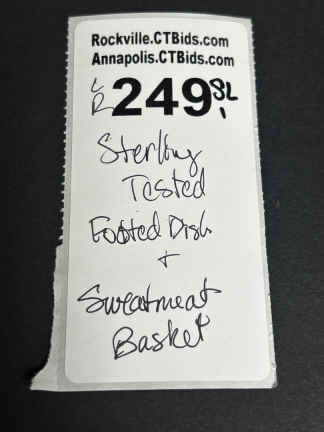 Rockville.CTBids.com
Annapolis.CTBids.com
LR 249 SL
Sterling
Tested
Footed Dish
+
Sweatmeat
Basket